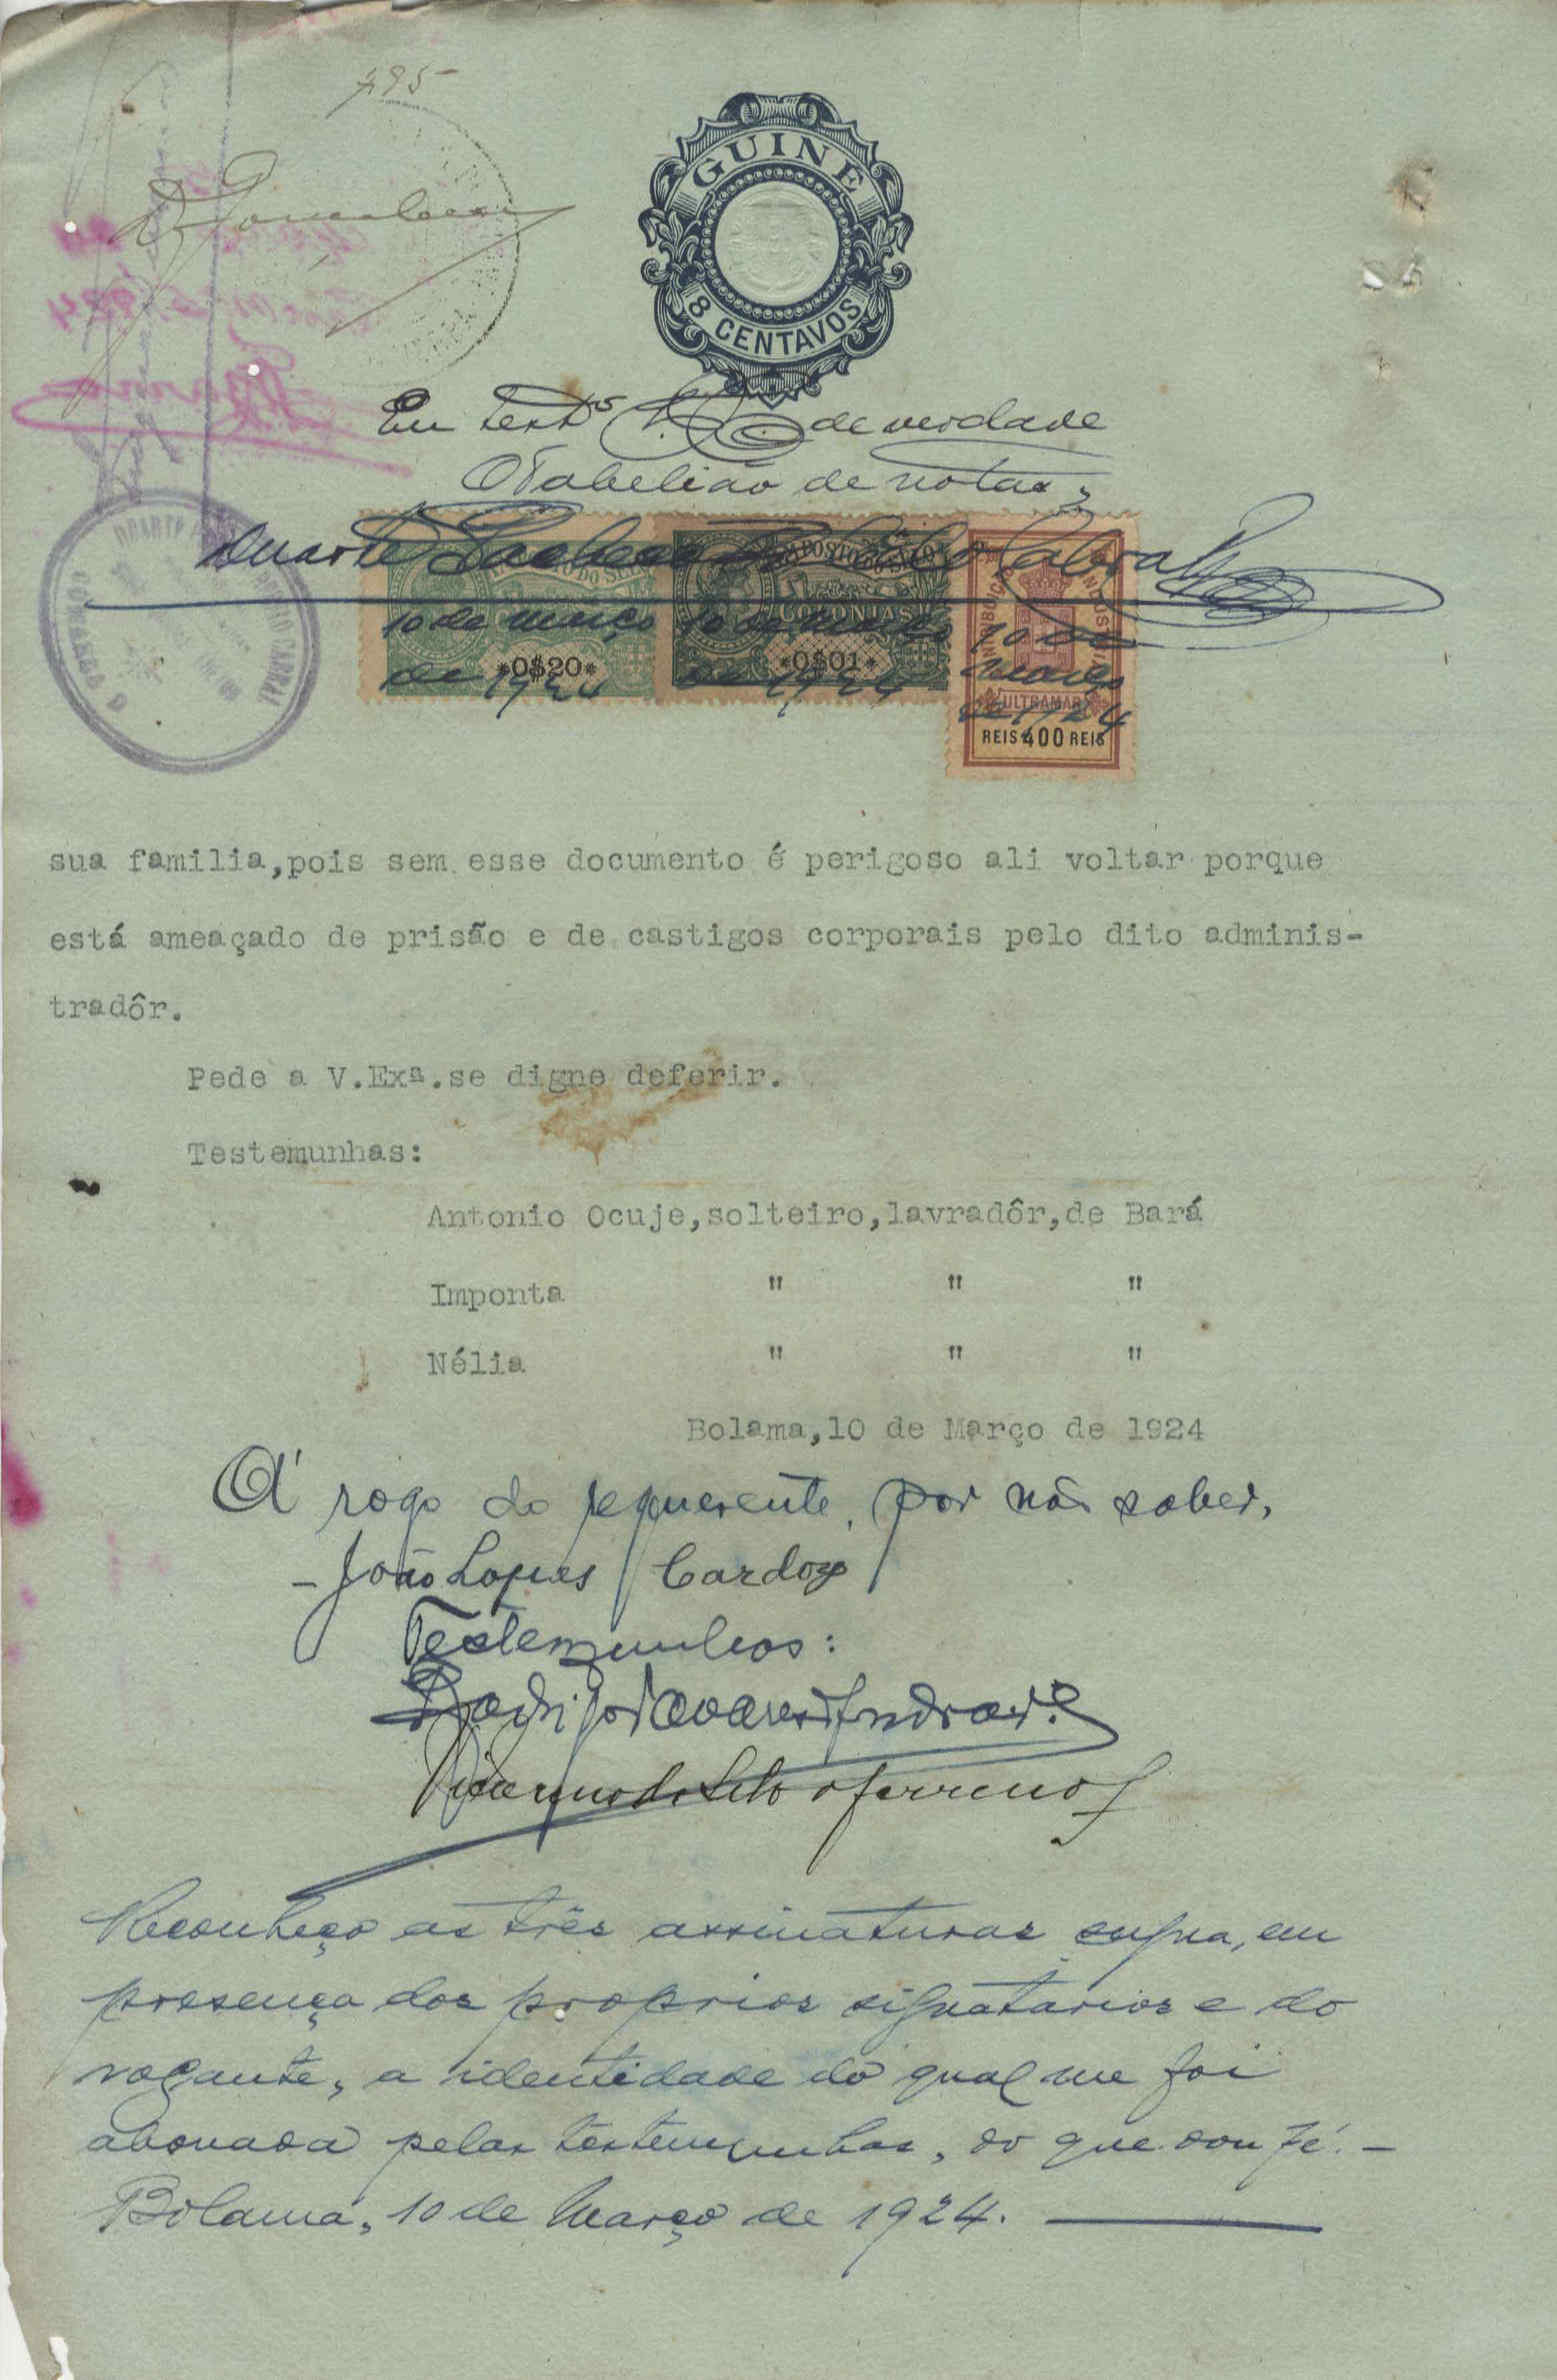 795
GUINÉ
8 CENTAVOS
Em testº de verdade
O Tabelião de notas,
Duarte Pacheco Cabral
IMPOSTO DO SELO
10 de março
*0$20*
de 1924
IMPOSTO DO SELO
COLONIAS
10 de março
*0$01*
de 1924
10 de
março
ULTRAMAR
de 1924
REIS 400 REIS
sua familia,pois sem esse documento é perigoso ali voltar porque
está ameaçado de prisão e de castigos corporais pelo dito adminis-
tradôr.
Pede a V.Exª.se digne deferir.
Testemunhas:
Antonio Ocuje,solteiro,lavradôr,de Bará
Imponta " " "
Nélia " " "
Bolama,10 de Março de 1924
A' rogo do requerente, por não saber,
- João Lopes Cardozo
Testemunhas:
Rodrigo Tavares Andrade
Reconheço as três assinaturas supra, em
presença dos proprios signatarios e do
rogante, a identidade do qual me foi
abonada pelas testemunhas, do que dou fé. -
Bolama, 10 de Março de 1924.